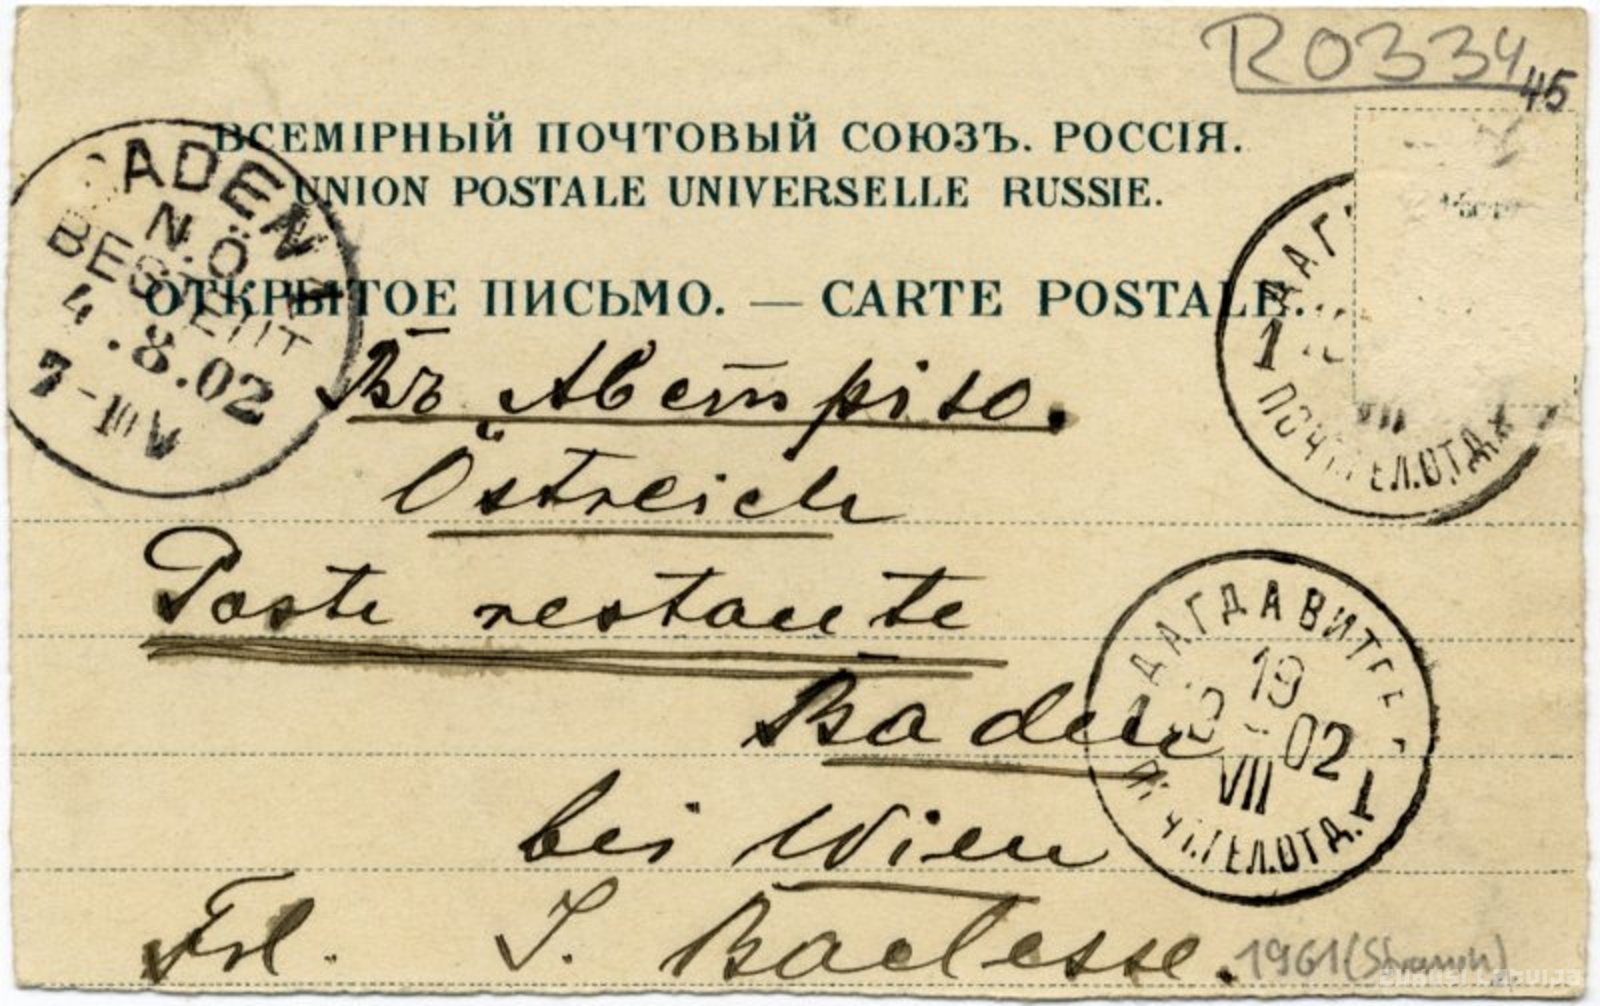 R0334
45
ВСЕМІРНЫЙ ПОЧТОВЫЙ СОЮЗЪ. РОССІЯ.
UNION POSTALE UNIVERSELLE RUSSIE.
ОТКРЫТОЕ ПИСЬМО. — CARTE POSTALE.
BADEN 1
N.Ö.
BESTELLT
4.8.02
7-
V
ДАГ
1
VII
ПОЧТ.ТЕЛ.ОТД.
Въ Австрію.
Östreich
Poste restante
Baden
bei Wien
Frl. J. Baclesse.
ДАГДА ВИТЕБ
19
02
VII
ПОЧТ.ТЕЛ.ОТД.
1
1961
zudusi Latvija